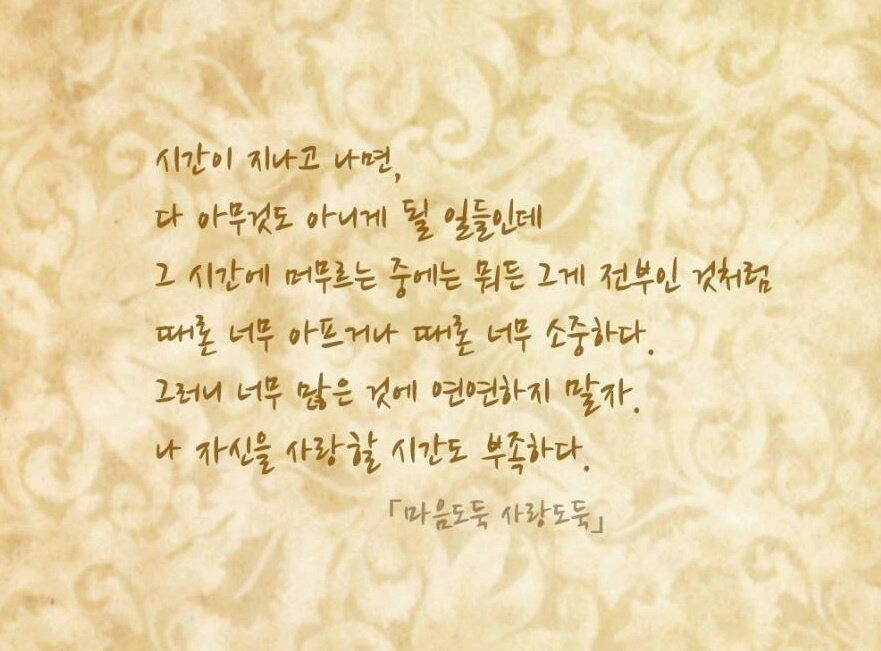 시간이 지나고 나면,
다 아무것도 아니게 될 일들인데
그 시간에 머무르는 중에는 뭐든 그게 전부인 것처럼
때론 너무 아프거나 때론 너무 소중하다.
그러니 너무 많은 것에 연연하지 말자.
나 자신을 사랑할 시간도 부족하다.
「마음도둑 사랑도둑」